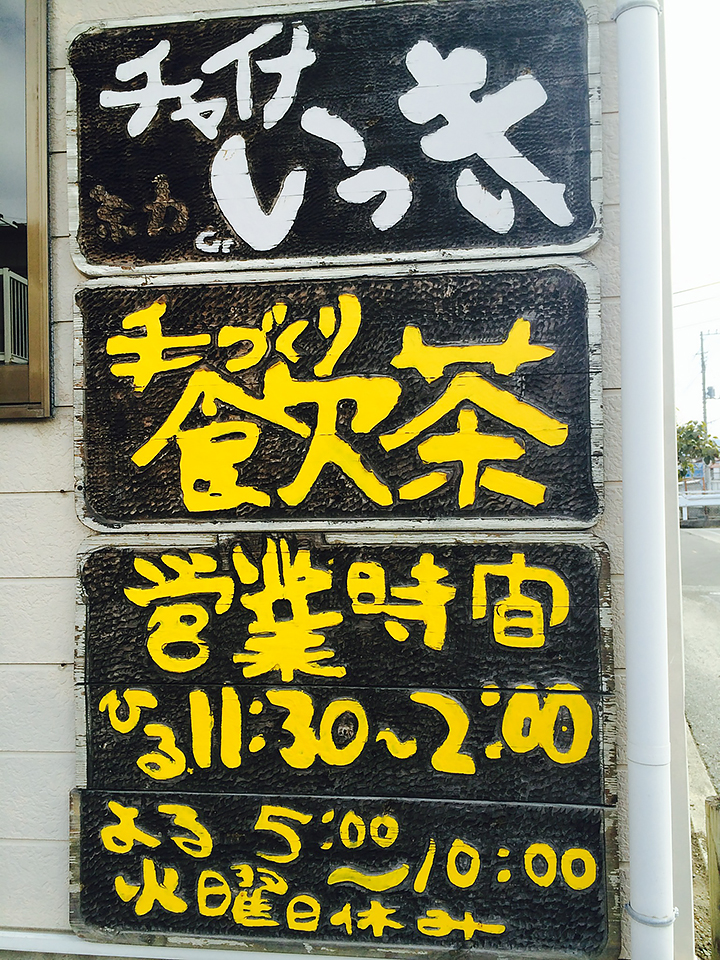 チャイナ
いっき
手づくり
飲茶
営業時间
ひる11:30～2:00
よる 5:00
～10:00
火曜日休み